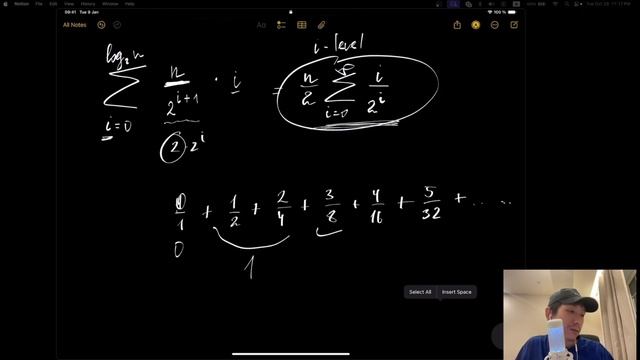 Notion File Edit View History Window Help
09:41 Tue 9 Jan
100 %
All Notes
Aa
i-level
log₂n
∑ n/2^(i+1) · i = n/2 ∑ i/2^i
i=0
∞
i=0
2·2^i
0/1 + 1/2 + 2/4 + 3/8 + 4/16 + 5/32 + .....
0
1
Select All Insert Space